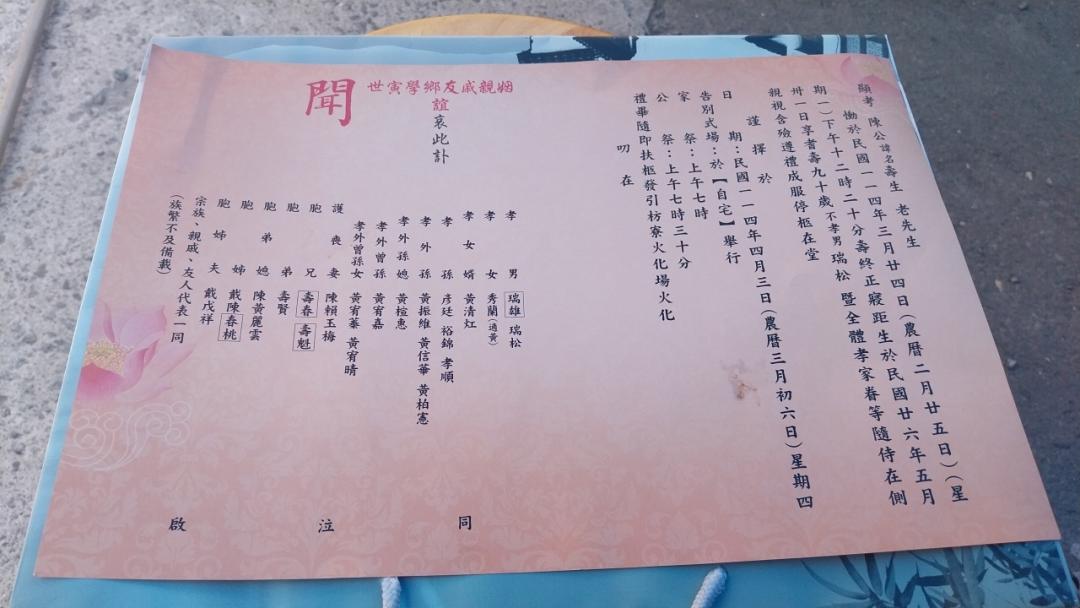 顯考 陳公諱名壽生 老先生
慟於民國一一四年三月廿四日(農曆二月廿五日)(星
期一)下午十二時二十分壽終正寢距生於民國廿六年五月
卅一日享耆壽九十歲不孝男瑞松 暨全體孝家眷等隨侍在側
親視含殮遵禮成服停柩在堂
謹擇於
日期:民國一一四年四月三日(農曆三月初六日)星期四
告別式場:於【自宅】舉行
家祭:上午七時
公祭:上午七時三十分
禮畢隨即扶柩發引枋寮火化場火化
叨在
姻親戚友鄉學寅世
誼
哀此訃
聞
孝男 瑞雄 瑞松
孝女 秀蘭(適黃)
孝女婿 黃清灴
孝孫 彥廷 裕錦 孝順
孝外孫 黃振維 黃信華 黃柏憲
孝外孫媳 黃楦惠
孝外曾孫 黃宥嘉
孝外曾孫女 黃宥蓁 黃宥晴
護喪妻 陳賴玉梅
胞兄 壽春 壽魁
胞弟 壽賢
胞弟媳 陳黃麗雲
胞姊 戴陳春桃
胞姊夫 戴戊祥
宗族、親戚、友人代表一同
(族繁不及備載)
同泣啟